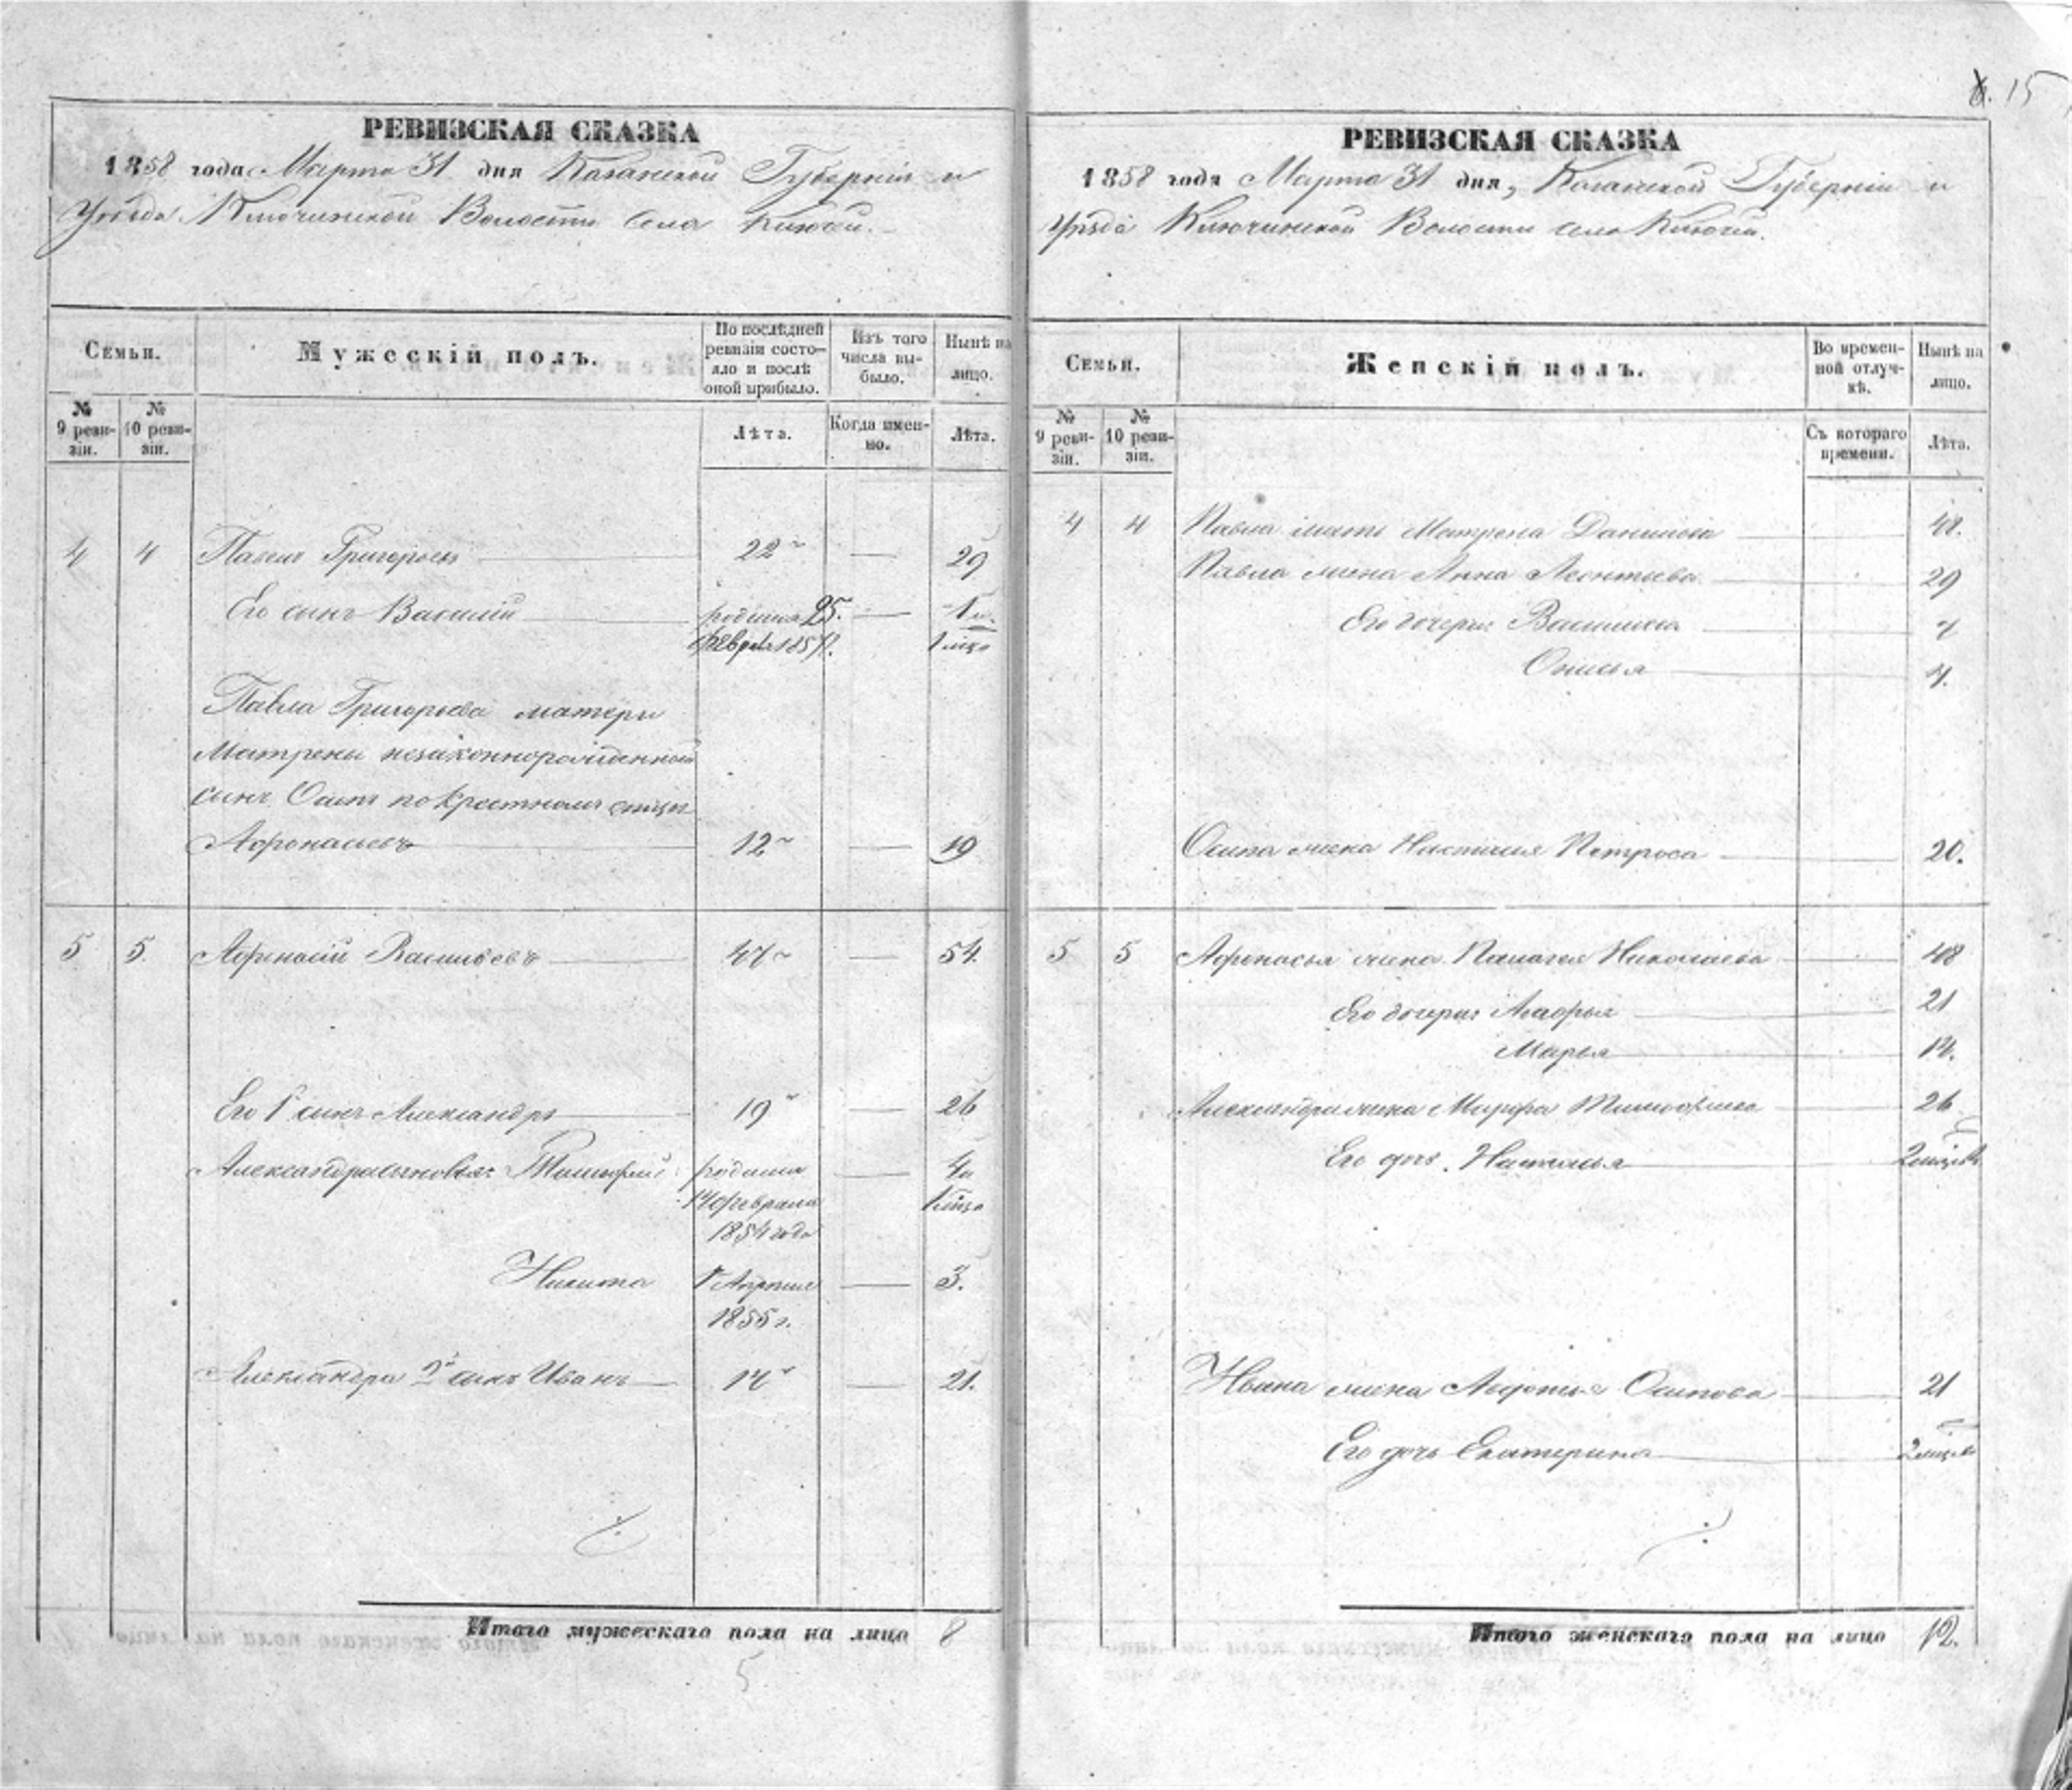 6. 15
РЕВИЗСКАЯ СКАЗКА
1858 года Марта 31 дня Казанской Губерніи и
Уѣзда Ключинской Волости Села Ключей.
Семьи.
Мужескій полъ.
По послѣдней ревизіи состояло и послѣ оной прибыло.
Изъ того числа выбыло.
Нынѣ на лицо.
№ 9 ревизіи.
№ 10 ревизіи.
Лѣта.
Когда именно.
Лѣта.
4 4 Павелъ Григорьевъ 22 — 29
Его сынъ Василій родился 25. — 1 и
Февраля 1857. 1 мѣсц
Павла Григорьева матери
Матрены незаконнорожденной
сынъ Осипъ по крестному отцу
Афонасьевъ 12 — 19
5 5 Афонасій Васильевъ 47 — 54.
Его 1й сынъ Александръ 19 — 26
Александра сыновья: Тимофей родился — 4 и
14 февраля 1 мѣсц
1854 года
Никита 1 Апреля — 3.
1855 г.
Александра 2й сынъ Иванъ 14 — 21.
Итого мужескаго пола на лицо 8
5
РЕВИЗСКАЯ СКАЗКА
1858 года Марта 31 дня, Казанской Губерніи и
Уѣзда Ключинской Волости села Ключей.
Семьи.
Женскій полъ.
Во временной отлучкѣ.
Нынѣ на лицо.
№ 9 ревизіи.
№ 10 ревизіи.
Съ котораго времени.
Лѣта.
4 4 Павла мать Матрена Данилова 48.
Павла жена Анна Леонтьева 29
Его дочери: Василиса 7
Онисья 4.
Осипа жена Настасья Петрова 20.
5 5 Афонасья жена Палагея Николаева 48
Его дочери: Марья 14.
21
Александра жена Марфа Тимофеева 26
Его дочь Наталья 2 мѣсцовъ
Ивана жена Авдотья Осипова 21
Его дочь Екатерина 2 мѣсцов
Итого женскаго пола на лицо 12.